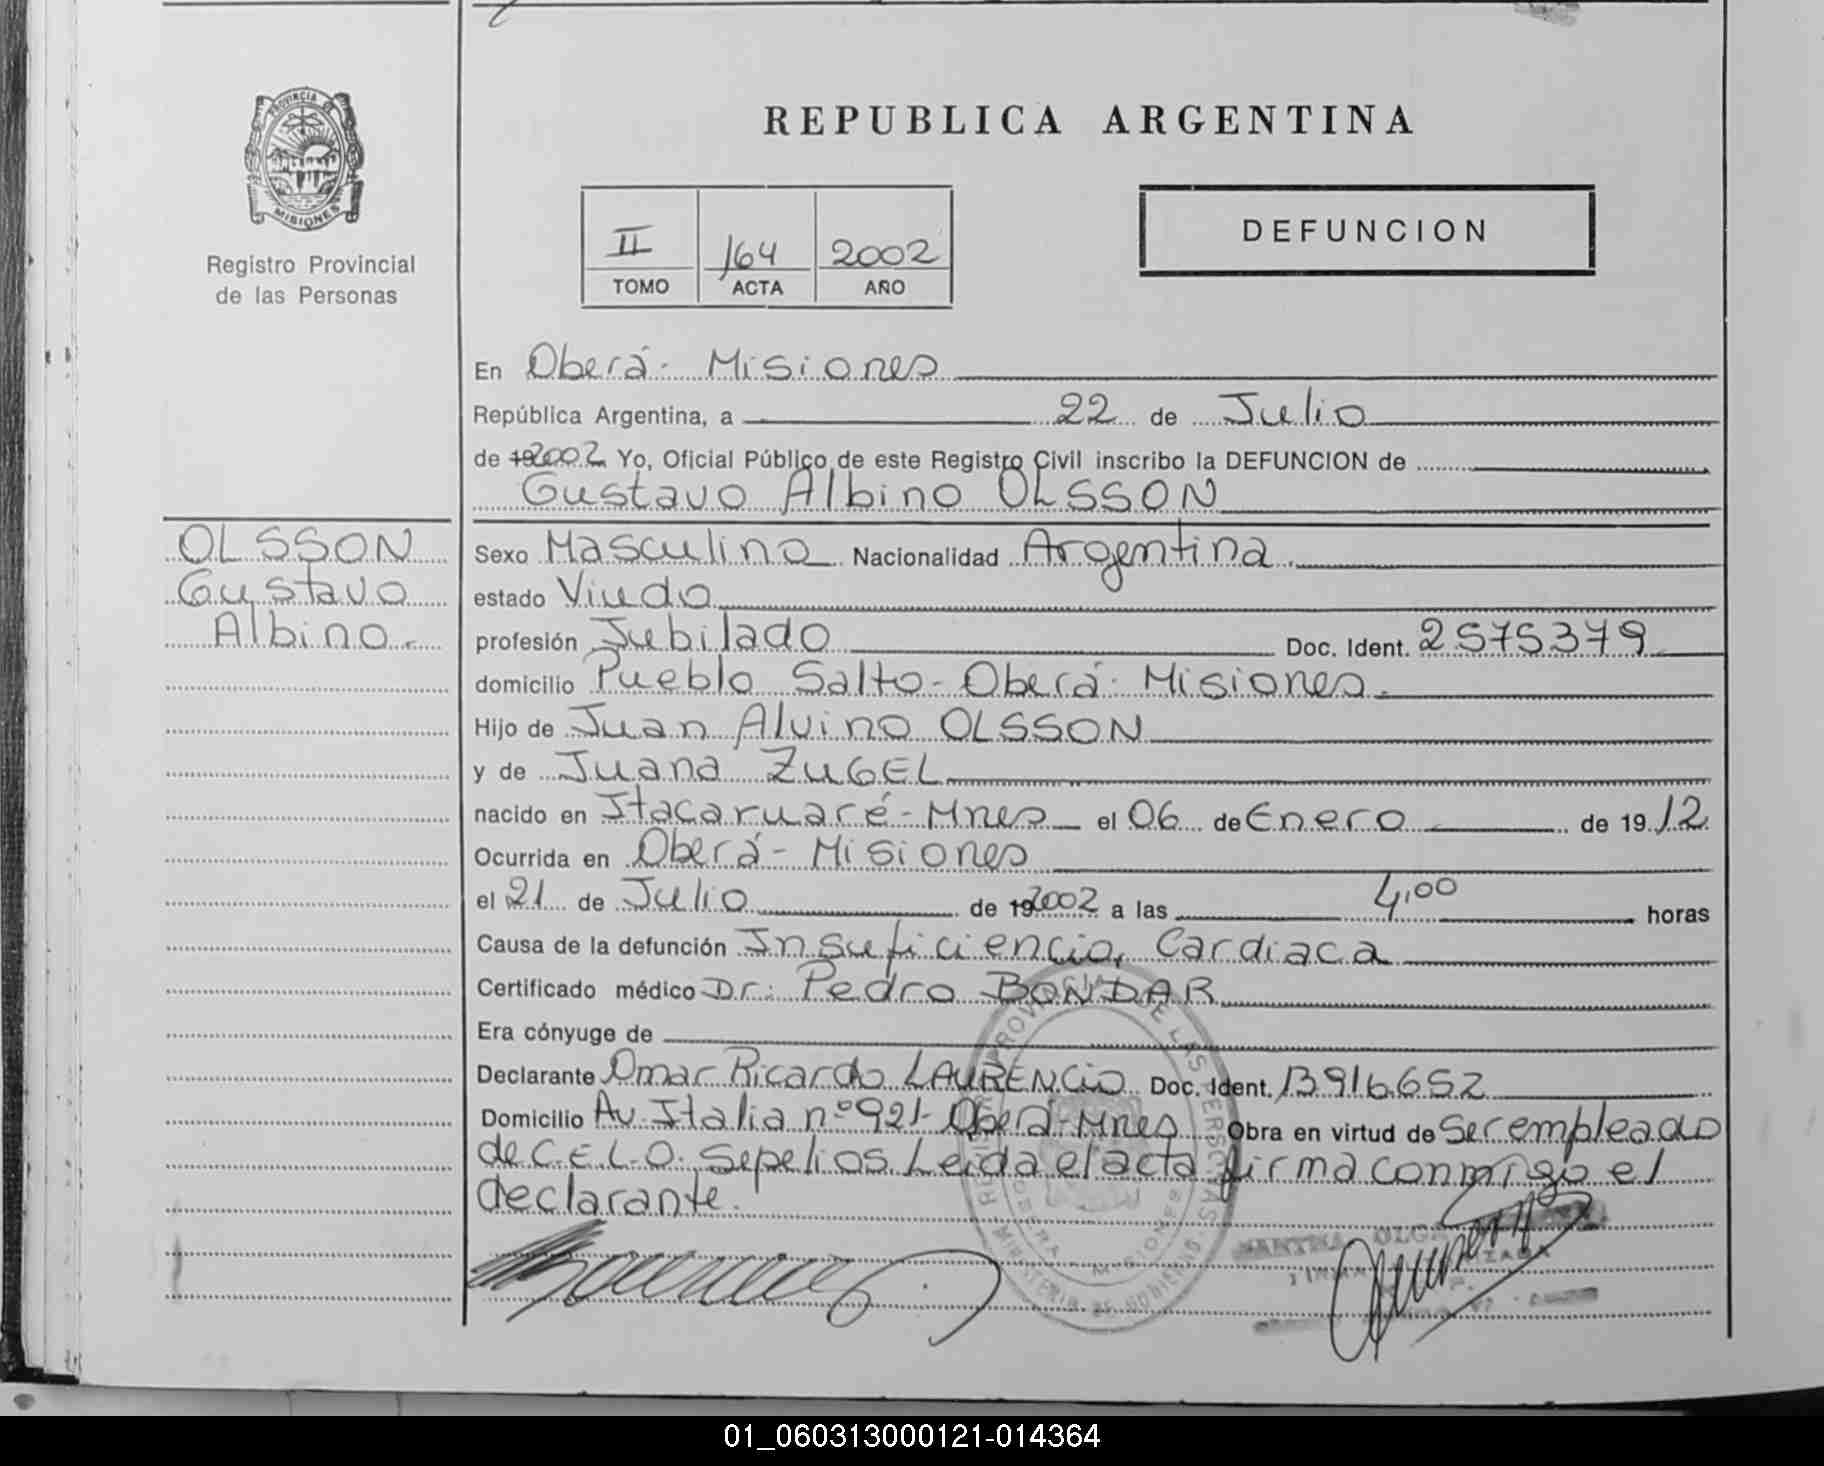 PROVINCIA DE
MISIONES
Registro Provincial
de las Personas
REPUBLICA ARGENTINA
II 164 2002
TOMO ACTA AÑO
DEFUNCION
En Oberá - Misiones
República Argentina, a 22 de Julio
de 192002 Yo, Oficial Público de este Registro Civil inscribo la DEFUNCION de
Gustavo Albino OLSSON
OLSSON
Gustavo
Albino.
Sexo Masculino Nacionalidad Argentina.
estado Viudo
profesión Jubilado Doc. Ident. 2575379
domicilio Pueblo Salto - Oberá - Misiones.
Hijo de Juan Alvino OLSSON
y de Juana ZUGEL
nacido en Itacaruaré - Mnes el 06 de Enero de 19 12
Ocurrida en Oberá - Misiones
el 21 de Julio de 192002 a las 4,00 horas
Causa de la defunción Insuficiencia, Cardiaca
Certificado médico Dr: Pedro BONDAR
Era cónyuge de
Declarante Omar Ricardo LAURENCIO Doc. Ident. 13916652
Domicilio Av. Italia nº 921 - Oberá - Mnes Obra en virtud de Ser empleado
de C.E.L.O. Sepelios. Leida el acta firma conmigo el
declarante.
PROVINCIAL DE LAS PERSONAS
OBERA - MISIONES
MINISTERIO DE GOBIERNO
OLGA
FIRMA
01_060313000121-014364